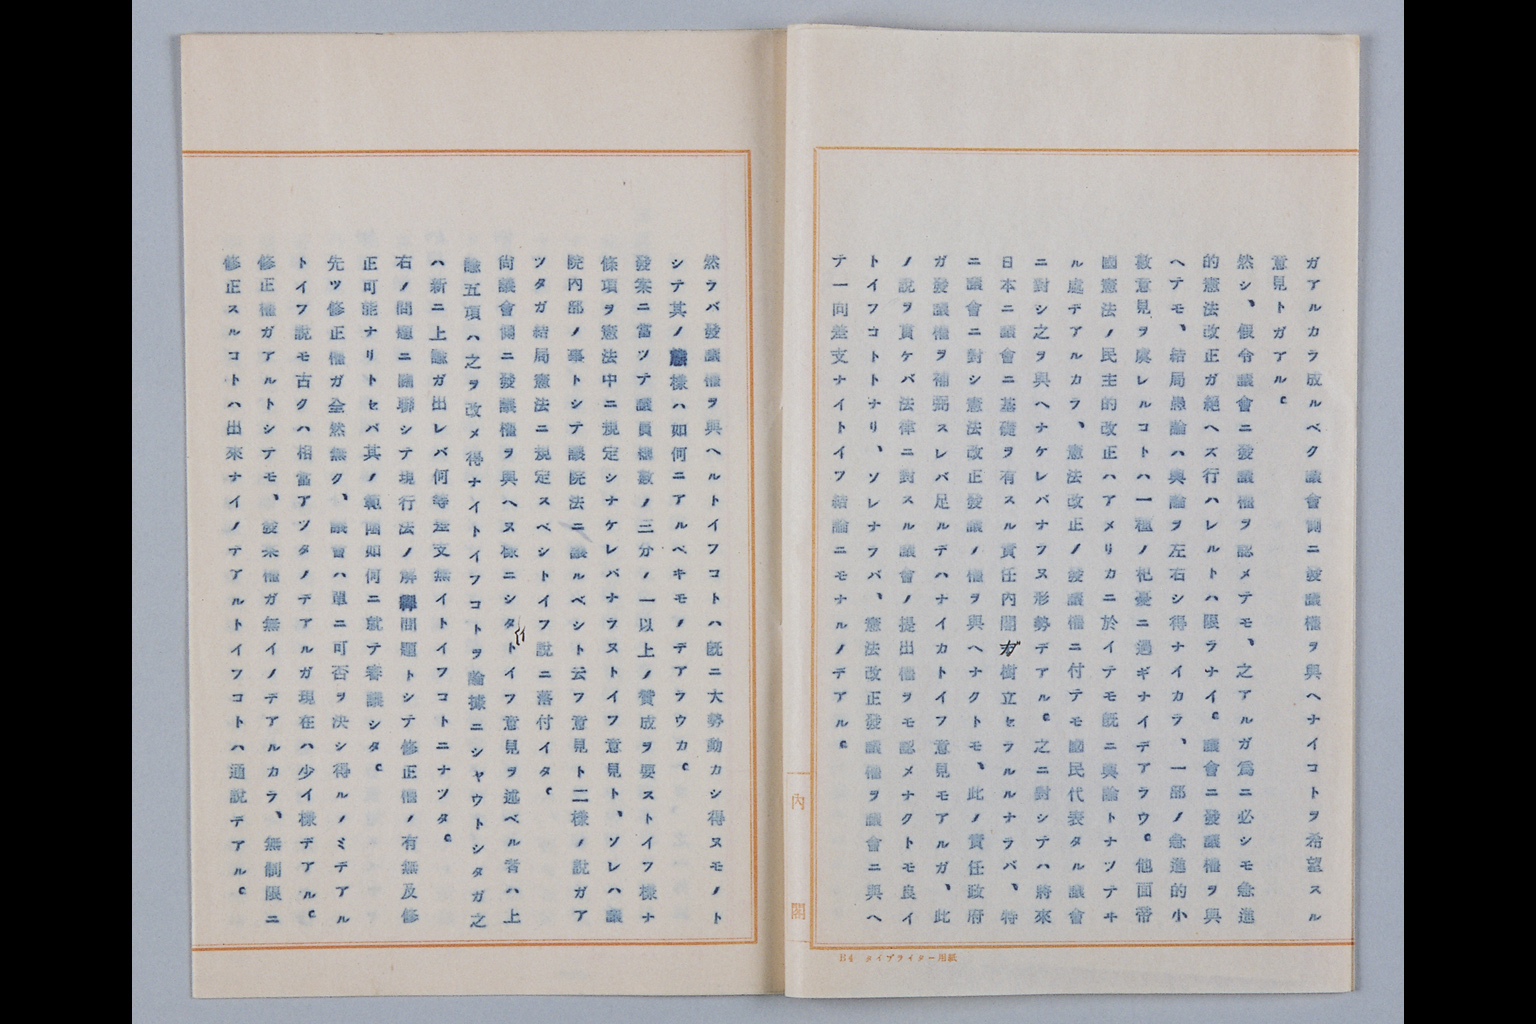 ガアルカラ成ルベク議會側ニ發議權ヲ與ヘナイコトヲ希望スル
意見トガアル。
然シ、假令議會ニ發議權ヲ認メテモ、之アルガ爲ニ必シモ急進
的憲法改正ガ絕ヘズ行ハレルトハ限ラナイ。議會ニ發議權ヲ與
ヘテモ、結局愚論ハ輿論ヲ左右シ得ナイカラ、一部ノ急進的小
數意見ヲ虞レルコトハ一種ノ杞憂ニ過ギナイデアラウ。他面帝
國憲法ノ民主的改正ハアメリカニ於イテモ既ニ輿論トナツテヰ
ル處デアルカラ、憲法改正ノ發議權ニ付テモ國民代表タル議會
ニ對シ之ヲ與ヘナケレバナラヌ形勢デアル。之ニ對シテハ將來
日本ニ議會ニ基礎ヲ有スル責任內閣ガ樹立セラルルナラバ、特
ニ議會ニ對シ憲法改正發議ノ權ヲ與ヘナクトモ、此ノ責任政府
ガ發議權ヲ補弼スレバ足ルデハナイカトイフ意見モアルガ、此
ノ說ヲ貫ケバ法律ニ對スル議會ノ提出權ヲモ認メナクトモ良イ
トイフコトトナリ、ソレナラバ、憲法改正發議權ヲ議會ニ與ヘ
テ一向差支ナイトイフ結論ニモナルノデアル。
內閣
B4 タイプライター用紙
然ラバ發議權ヲ與ヘルトイフコトハ既ニ大勢動カシ得ヌモノト
シテ其ノ態樣ハ如何ニアルベキモノデアラウカ。
發案ニ當ツテ議員總數ノ三分ノ一以上ノ贊成ヲ要ストイフ樣ナ
條項ヲ憲法中ニ規定シナケレバナラヌトイフ意見ト、ソレハ議
院內部ノ事トシテ議院法ニ讓ルベシト云フ意見ト二樣ノ說ガア
ツタガ結局憲法ニ規定スベシトイフ說ニ落付イタ。
尙議會側ニ發議權ヲ與ヘヌ樣ニシタイトイフ意見ヲ述ベル者ハ上
諭五項ハ之ヲ改メ得ナイトイフコトヲ論據ニシヤウトシタガ之
ハ新ニ上諭ガ出レバ何等差支無イトイフコトニナツタ。
右ノ問題ニ關聯シテ現行法ノ解釋問題トシテ修正權ノ有無及修
正可能ナリトセバ其ノ範圍如何ニ就テ審議シタ。
先ヅ修正權ガ全然無ク、議會ハ單ニ可否ヲ決シ得ルノミデアル
トイフ說モ古クハ相當アツタノデアルガ現在ハ少イ樣デアル。
修正權ガアルトシテモ、發案權ガ無イノデアルカラ、無制限ニ
修正スルコトハ出來ナイノデアルトイフコトハ通說デアル。